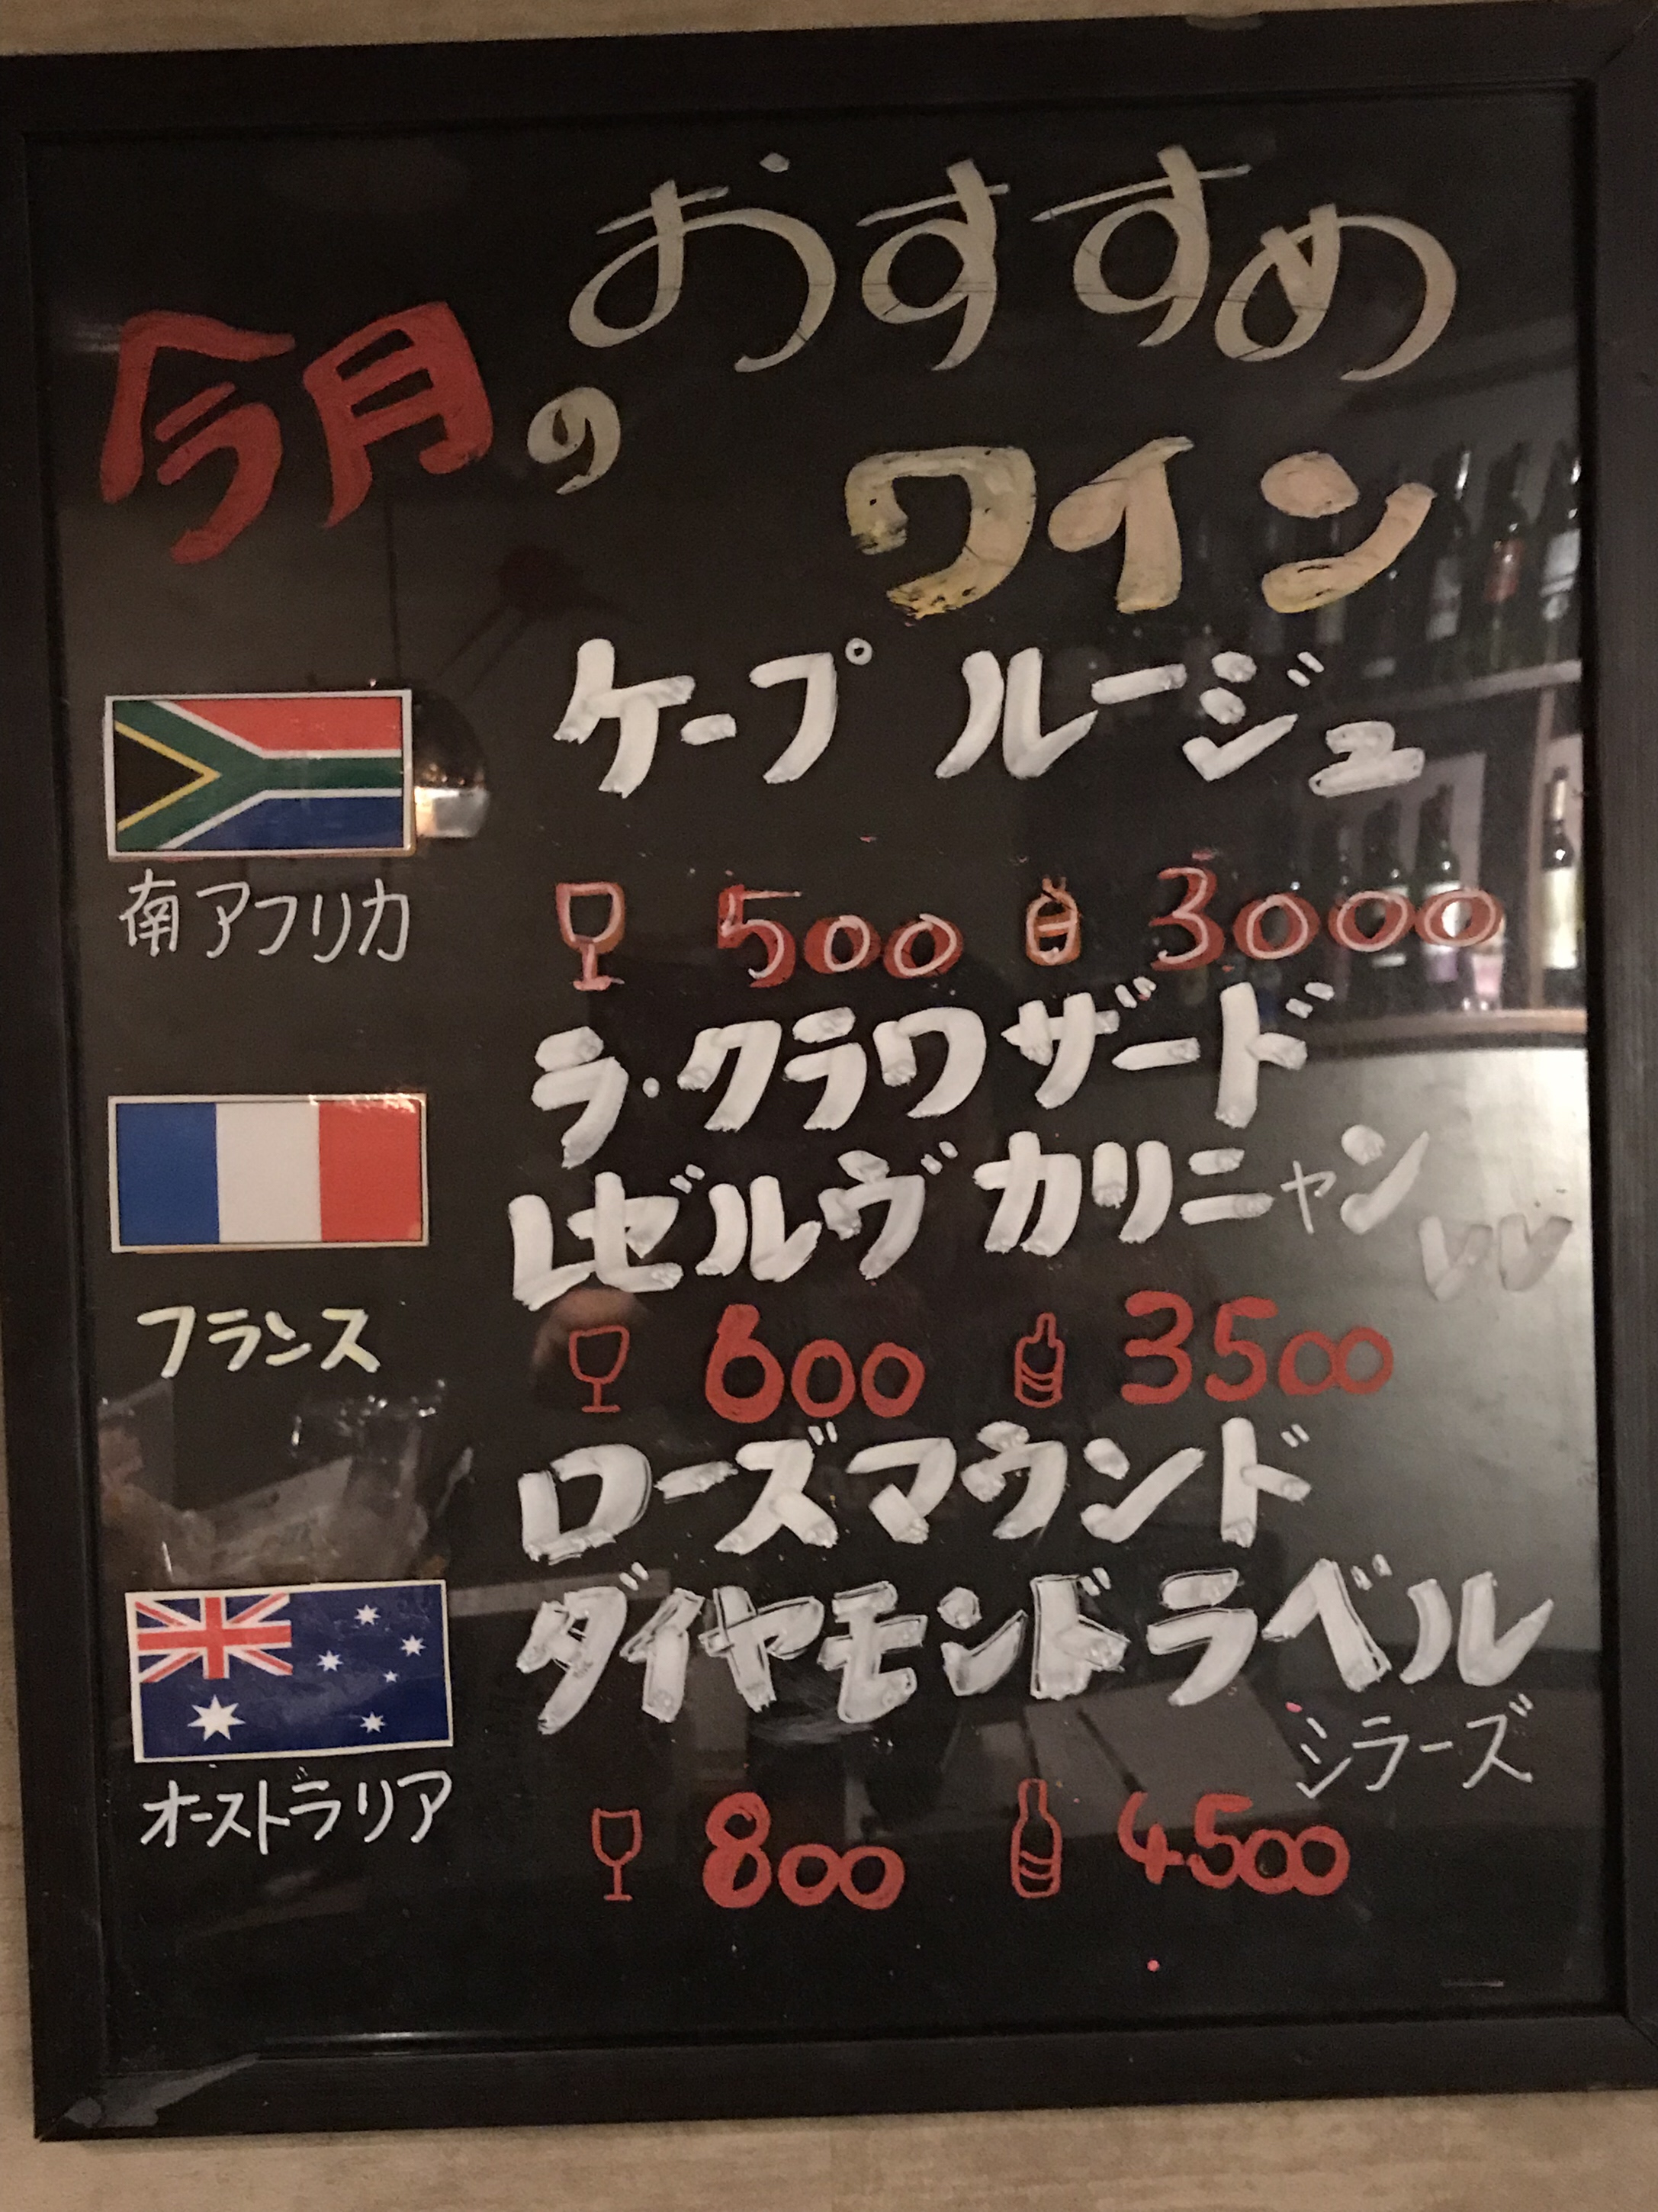 今月の
おすすめ
ワイン
南アフリカ
ケープ ルージュ
500 3000
フランス
ラ・クラワザード
レゼルヴ カリニャン VV
600 3500
オーストラリア
ローズマウンド
ダイヤモンドラベル
シラーズ
800 4500